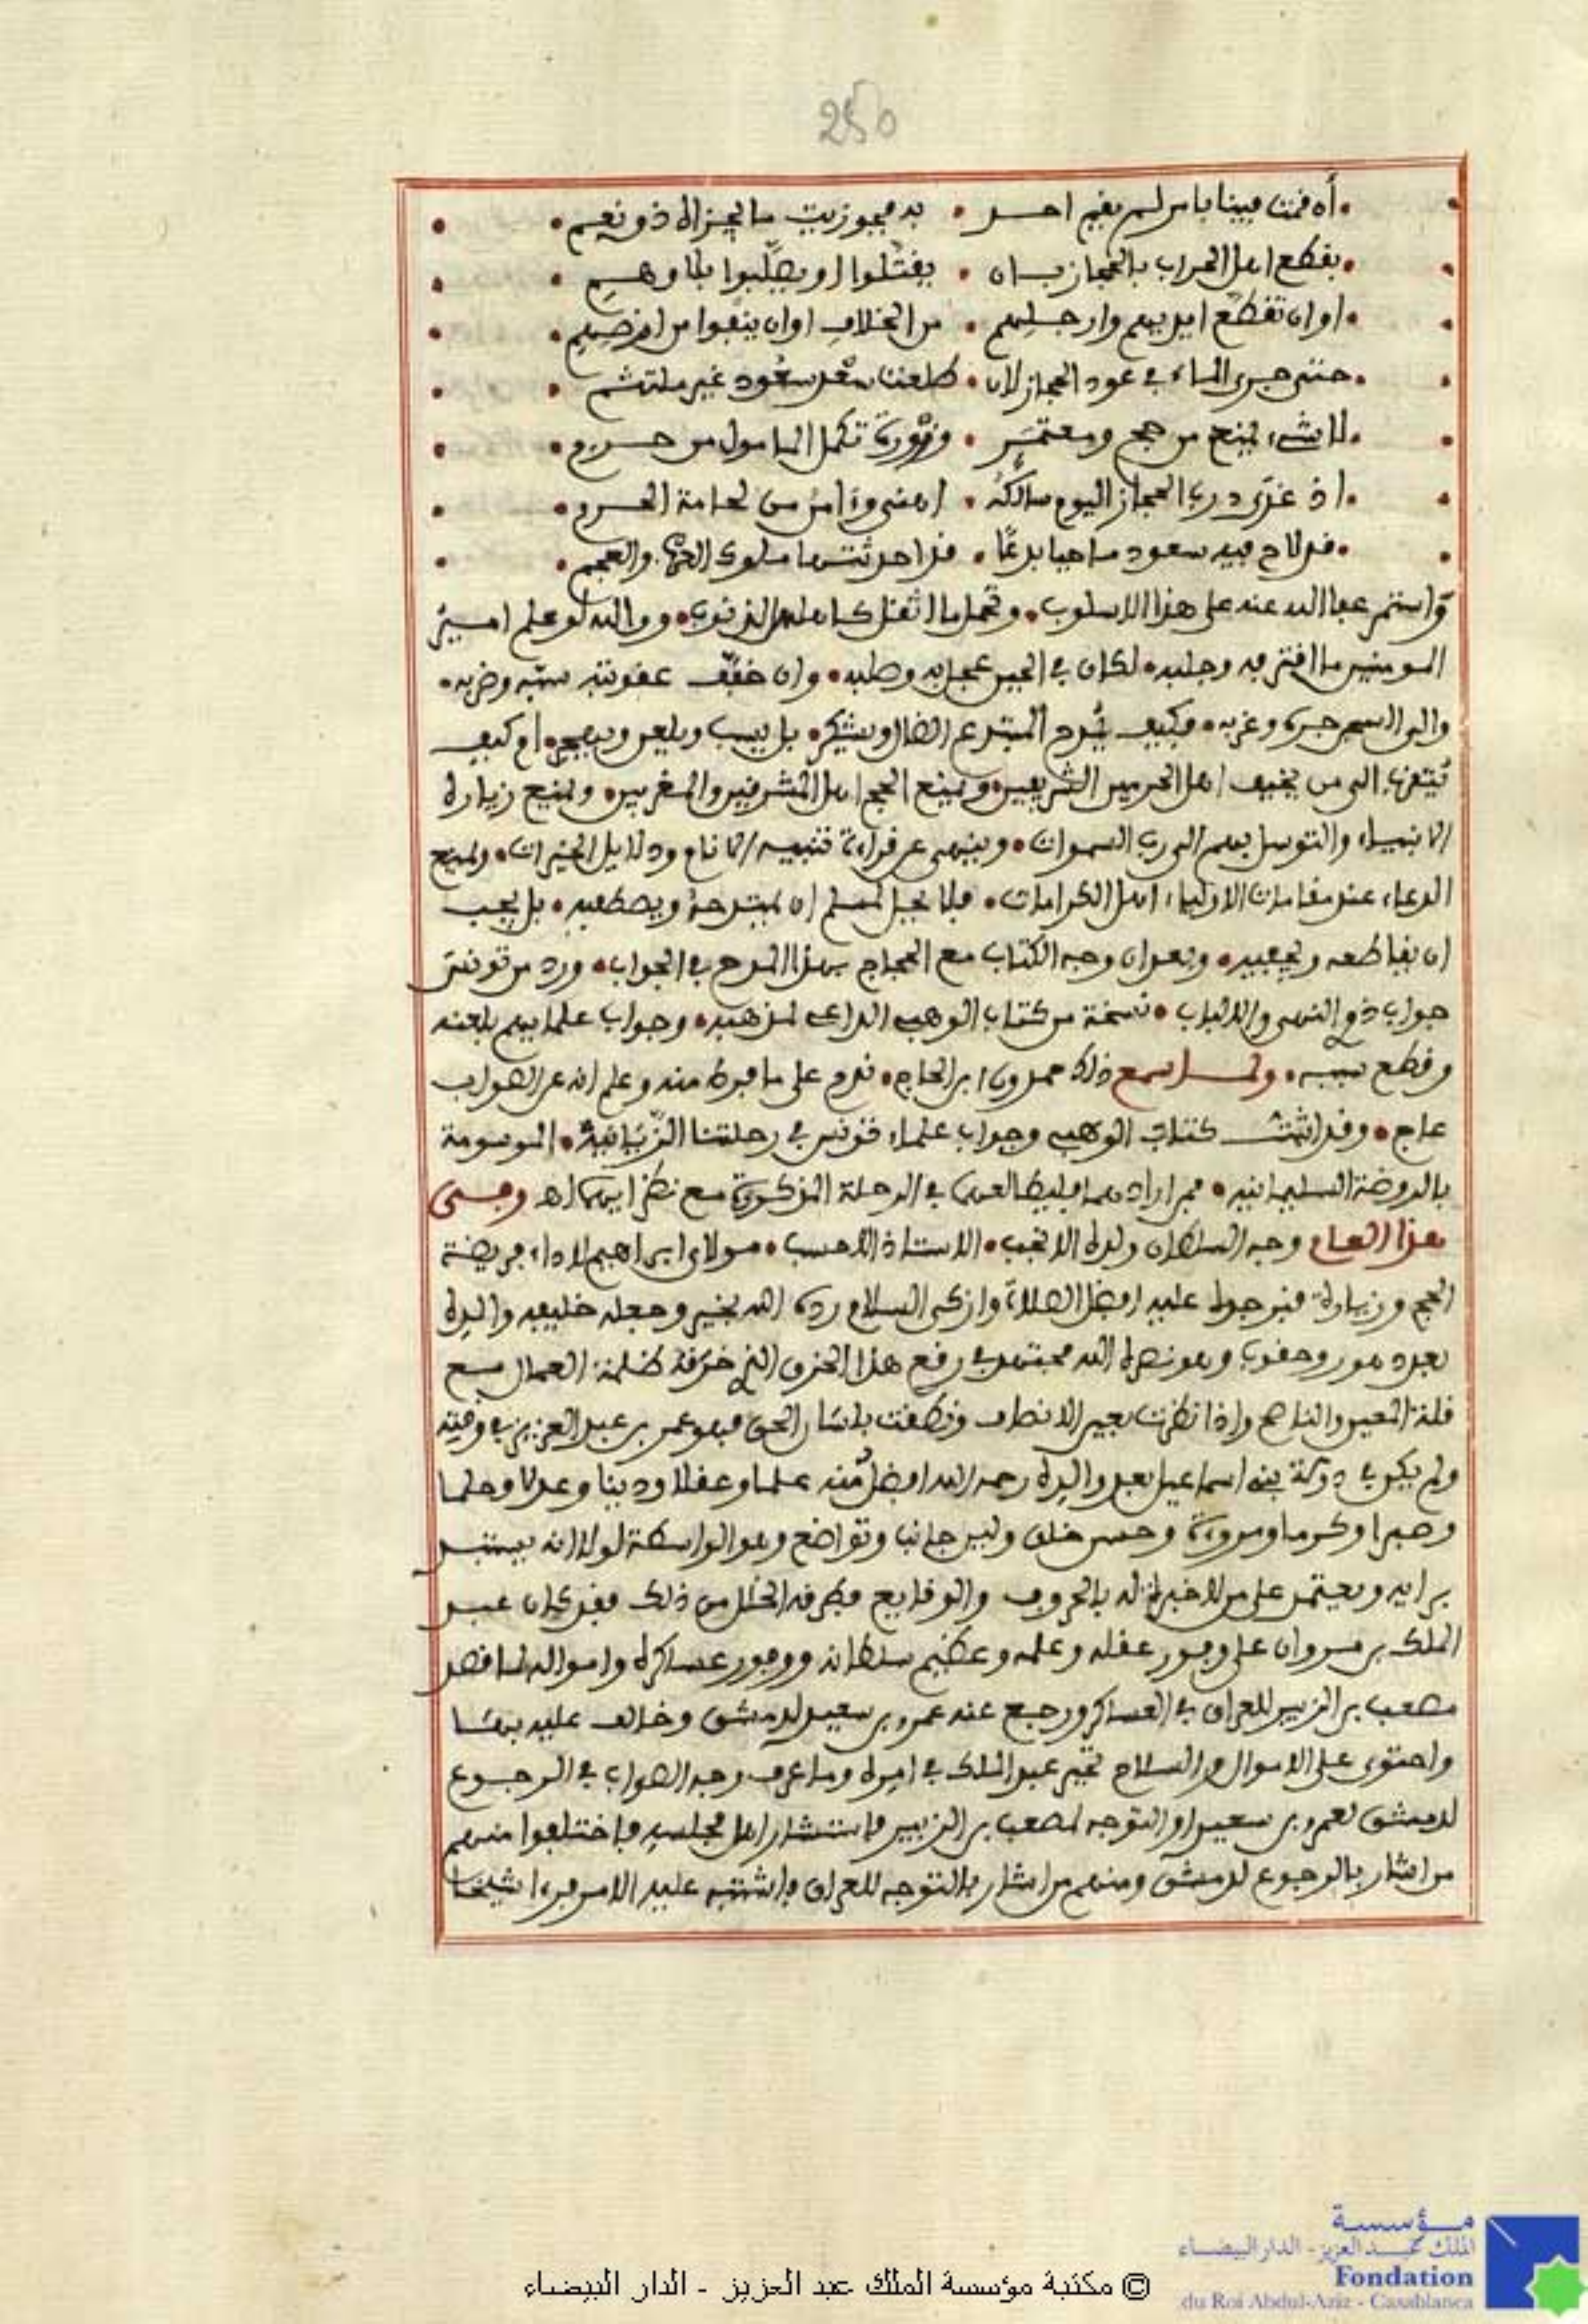 250
أن قمت فينا بأمر لم يقم احد • به فجوزيت ما يجزاه ذو نعم
بقطع اهل الحراب بالحجاز بان • يقتلوا او يصلبوا بلا وهم
او ان تقطع ايديهم وارجلهم • من الخلاف او ان ينفوا من ارضهم
حتى جرى الماء في عود الحجاز لان • طلعت سعد سعود غير ملتثم
لا شيء يمنع من حج ومعتمر • وزورة تكمل المامول من حرم
اذ عاد درب الحجاز اليوم سالكه • اهنى وءامن من حمامة الحرم
قد لاح فيه سعود ماحيا بدعا • قد احدثتها ملوك العرب والعجم
واستمر عفا الله عنه على هذا الاسلوب • وتحمل ما اثقل كاهله من الذنوب • ووالله لو علم امير
المومنين ما اقترفه وجلبه • لكان في الحين عجل به وصلبه • وان خفف عقوبته سبه وضربه •
والى السجن جره وغربه • فكيف يمدح المبتدع الضال ويشكر • بل يسب ويلعن ويهجر • ام كيف
يتقرب الى من يخيف اهل الحرمين الشريفين • ويمنع الحج اهل المشرقين والمغربين • ويمنع زيارة
الانبياء والتوسل بهم الى رب السموات • وينهى عن قراءة تنبيه الانام ودلايل الخيرات • ويمنع
الدعاء عند مقامات الاولياء اهل الكرامات • فلا يحل لمسلم ان يمتدحه ويصطفيه • بل يجب
ان يقاطعه ويجفيه • وبعد ان وجه الكتاب مع الحجاج بهذا المدح في الجواب • ورد من تونس
جواب ذوي النهى والالباب • نسخة من كتاب الوهبي الداعي لمذهبه • وجواب علمايهم بلعنه
وقطع سببه • ولما سمع ذلك حمدون ابن الحاج • ندم على ما فرط منه وعلم انه عن الصواب
عاج • وقد اثبت كتاب الوهبي وجواب علماء تونس في رحلتنا الزيانية • الموسومة
بالروضة السليمانية • فمن ارادهما فليطالعهما في الرحلة المذكورة مع نظرايهما اه وفي
هذا العام وجه السلطان ولده الانجب • الاستاذ الاحسب • مولاي ابراهيم لاداء فريضة
الحج وزيارة قبر جده عليه افضل الصلاة وازكى السلام رده الله بخير وجعله خليفه والده
بعده وهو نصره الله مجتهد في رقع هذا الخرق الذي خرقه ظلمة العمال مع
قلة المعين والناصح واذا نظرت بعين الانصاف ونطقت بلسان الحق فهو عمر بن عبد العزيز في وقته
ولم يكن في دولة بني اسماعيل بعد والده رحمه الله افضل منه علما وعقلا ودينا وعدلا وحلما
وصبرا وكرما ومروءة وحسن خلق ولين جانب وتواضع وهو الواسطة لولا انه يستبد
برايه ويعتمد على من لا خبرة له بالحروب والوقايع فطرقه الخلل من ذلك فقد كان عبد
الملك بن مروان على وفور عقله وعلمه وعظيم سلطانه ووفور عساكره وامواله لما قصد
مصعب بن الزبير للعراق في العساكر ورجع عنه عمرو بن سعيد لدمشق وخالف عليه بها
واحتوى على الاموال والسلاح تحير عبد الملك في امره وما عرف وجه الصواب في الرجوع
لدمشق لعمرو بن سعيد او التوجه لمصعب بن الزبير فاستشار اهل مجلسه فاختلفوا منهم
من اشار بالرجوع لدمشق ومنهم من اشار بالتوجه للعراق فاشتبه عليه الامر فرءا شيخا
مؤسسة
الملك عبد العزيز - الدار البيضاء
Fondation
du Roi Abdul-Aziz - Casablanca
© مكتبة مؤسسة الملك عبد العزيز - الدار البيضاء